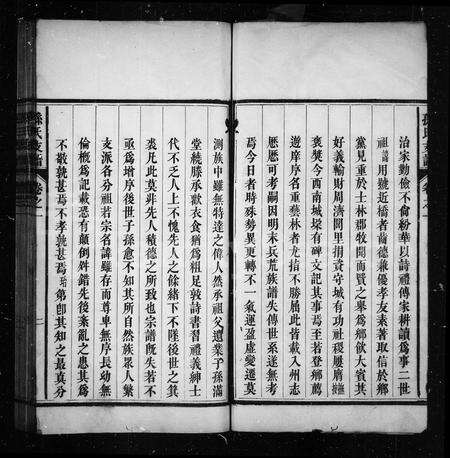 治家勤儉不尙紛華以詩禮傳家耕讀爲事二世
祖諱用號近橋者齒德兼優孝友素著取信於鄉
黨見重於士林郡牧聞而賢之舉爲鄉飮大賓其
好義輸財周濟閭里捐資守城有功社稷屢膺
褒獎今西南城垜有碑文記其事焉至若登鄉薦
遊庠序名重藝林者尤指不勝屈此皆載入州志
歷歷可考嗣因明末兵荒族譜失傳世系遂無考
焉今日者時殊勢異更轉不一氣運盈虛變遷莫
測族中雖無特達之偉人然承祖父遺業子孫滿
堂繞膝承歡衣食猶爲粗足敦詩書習禮義紳士
代不乏人上不愧先人之餘緒下不陞後世之箕
裘凡此莫非先人積德之所致也宗譜旣失若不
亟爲增序後世子孫愈不知其所自然族衆人繁
支派各分祖若宗名諱雖存而尊卑無序長幼無
倫槪爲記載恐有顚倒舛錯先後紊亂之患其爲
不敬孰甚焉不孝孰甚焉 第卽其知之最眞分
孫氏支譜
卷之一
孫氏支譜
卷之一